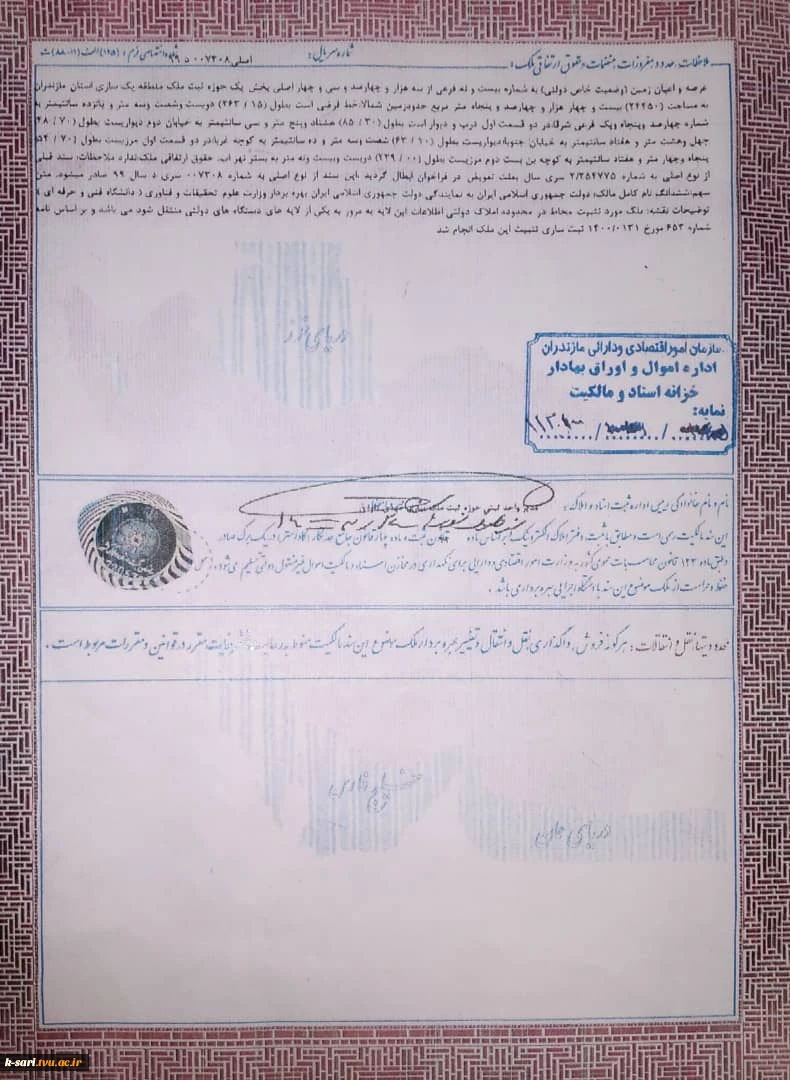 ملاحظات، حدود و مفروزات، منضمات و حقوق ارتفاقی ملک:
شماره سریال:
اصلی ۰۰۷۳۰۸ د ۹۹
عرصه و اعیان زمین (وضعیت خاص دولتی) به شماره بیست و نه فرعی از سه هزار و چهارصد و سی و چهار اصلی بخش یک حوزه ثبت ملک منطقه یک ساری استان مازندران
به مساحت (۲۴۴۵۰) بیست و چهار هزار و چهارصد و پنجاه متر مربع حدودزمین شمالا:خط فرضی است بطول (۱۵ / ۲۶۳) دویست وشصت وسه متر و پانزده سانتیمتر به
شماره چهارصد وپنجاه ویک فرعی شرقا:در دو قسمت اول درب و دیوار است بطول (۳۰ / ۸۵) هشتاد وپنج متر و سی سانتیمتر به خیابان دوم دیواریست بطول (۷۰ / ۴۸)
چهل وهشت متر و هفتاد سانتیمتر به خیابان جنوبا:دیواریست بطول (۱۰ / ۶۳) شصت وسه متر و ده سانتیمتر به کوچه غربا:در دو قسمت اول مرزیست بطول (۷۰ / ۵۴)
پنجاه وچهار متر و هفتاد سانتیمتر به کوچه بن بست دوم مرزیست بطول (۰۰ / ۲۲۹) دویست وبیست ونه متر به بستر نهر اب. حقوق ارتفاقی ملک:ندارد ملاحظات: سند قبلی
از نوع اصلی به شماره ۲/۳۵۴۷۷۵ سری سال بعلت تعویض در فراخوان ابطال گردید ،این سند از نوع اصلی به شماره ۰۰۷۳۰۸ سری د سال ۹۹ صادر میشود. متن
سهم:ششدانگ نام کامل مالک: دولت جمهوری اسلامی ایران به نمایندگی دولت جمهوری اسلامی ایران بهره بردار وزارت علوم تحقیقات و فناوری ( دانشگاه فنی و حرفه ای )
توضیحات نقشه: ملک مورد تثبیت محاط در محدوده املاک دولتی اطلاعات این لایه به مرور به یکی از لایه های دستگاه های دولتی منتقل شود می باشد و بر اساس نامه
شماره ۶۵۳ مورخ ۱۴۰۰/۰۱۳۱ ثبت ساری تثبیت این ملک انجام شد
دریای خزر
سازمان امور اقتصادی و دارائی مازندران
اداره اموال و اوراق بهادار
خزانه اسناد و مالکیت
نمایه:
نام و نام خانوادگی رئیس اداره ثبت اسناد و املاک:
این سند مالکیت رسمی است و مطابق با ثبت دفتر املاک الکترونیک و بر اساس ماده قانون ثبت و ماده چهار قانون جامع حدنگار (کاداستر) در یک برگ صادر
و طبق ماده ۱۲۲ قانون محاسبات عمومی کشور به وزارت امور اقتصادی و دارایی برای نگهداری در مخازن اسناد مالکیت اموال غیرمنقول دولتی تسلیم می‌شود.
حفظ و حراست از ملک موضوع این سند با دستگاه اجرایی بهره‌برداری باشد.
محدودیت‌ها، نقل و انتقالات: هرگونه فروش، واگذاری، نقل و انتقال و تغییر بهره بردار ملک موضوع این سند مالکیت منوط به رعایت مقرر در قوانین و مقررات مربوط است.
خلیج فارس
دریای عمان
k-sari.tvu.ac.ir